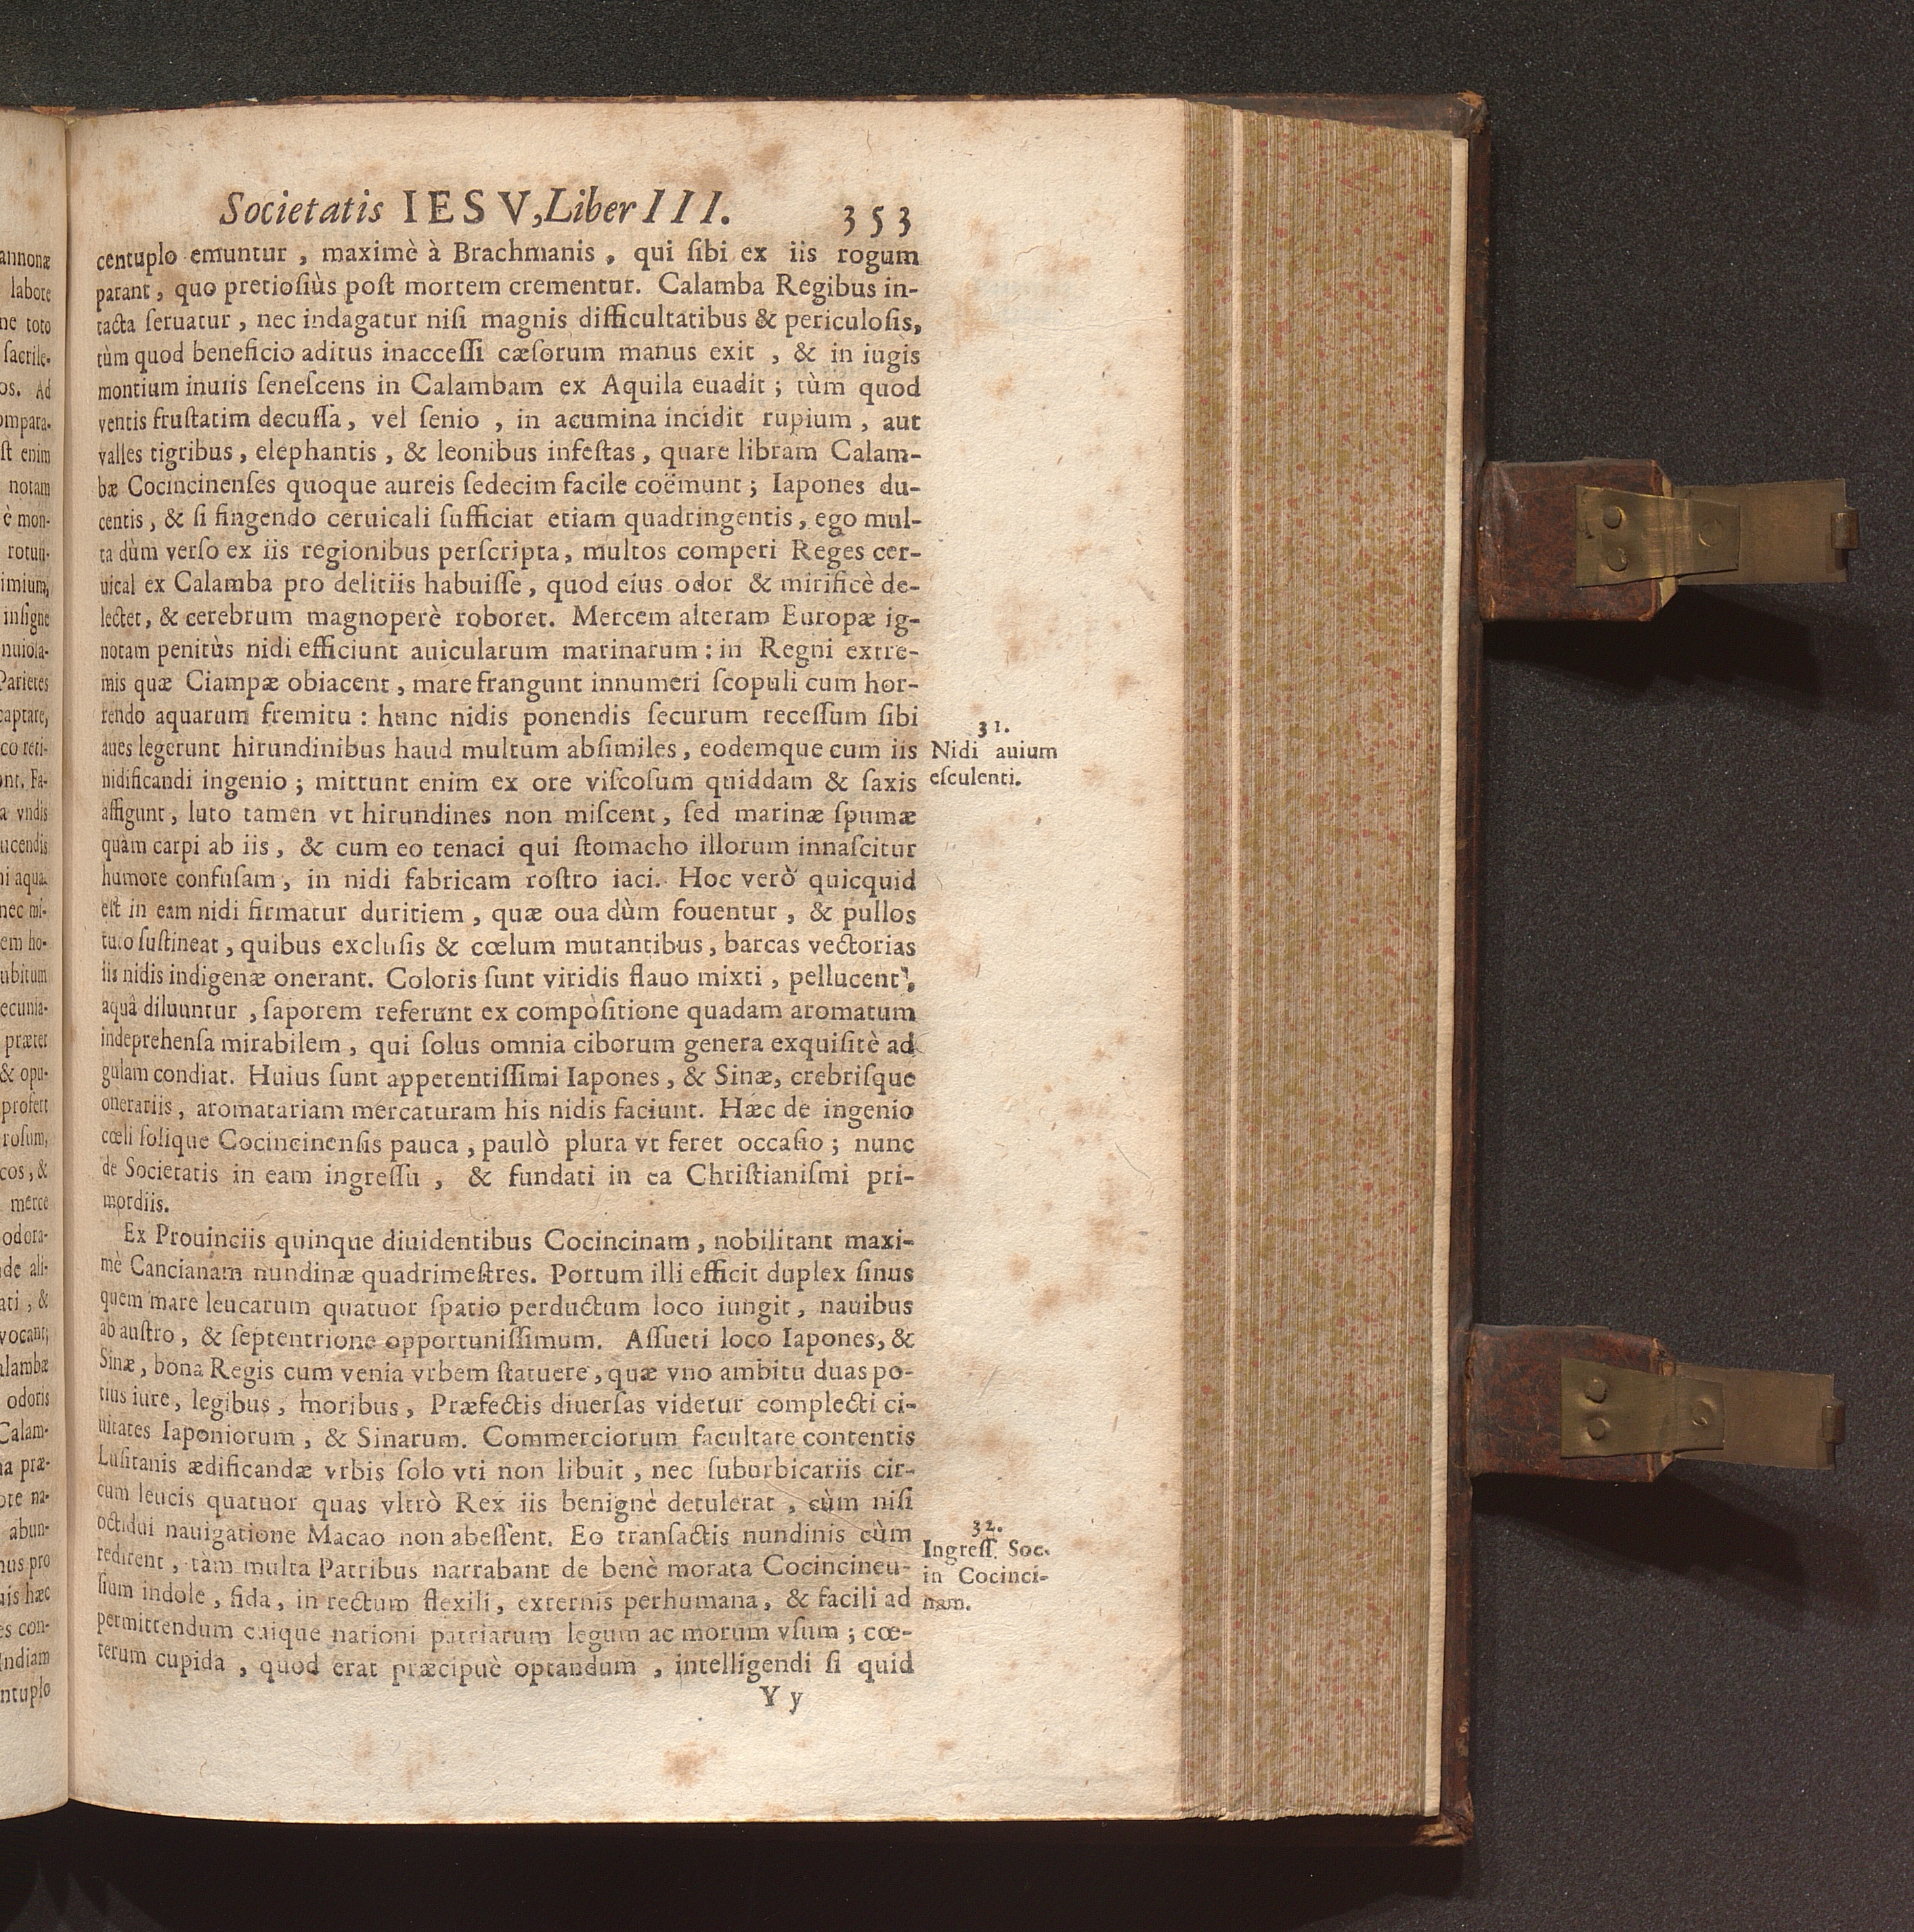 Societatis IESV, Liber III. 353
centuplo emuntur, maximè à Brachmanis, qui ſibi ex iis rogum
parant, quo pretioſiùs poſt mortem crementur. Calamba Regibus in-
tacta ſeruatur, nec indagatur niſi magnis difficultatibus & periculoſis,
tùm quod beneficio aditus inacceſſi cæſorum manus exit, & in iugis
montium inuiis ſeneſcens in Calambam ex Aquila euadit; tùm quod
ventis fruſtatim decuſſa, vel ſenio, in acumina incidit rupium, aut
valles tigribus, elephantis, & leonibus infeſtas, quare libram Calam-
bæ Cocincinenſes quoque aureis ſedecim facile coëmunt; Iapones du-
centis, & ſi fingendo ceruicali ſufficiat etiam quadringentis, ego mul-
ta dùm verſo ex iis regionibus perſcripta, multos comperi Reges cer-
uical ex Calamba pro delitiis habuiſſe, quod eius odor & mirificè de-
lectet, & cerebrum magnoperè roboret. Mercem alteram Europæ ig-
notam penitùs nidi efficiunt auicularum marinarum: in Regni extre-
mis quæ Ciampæ obiacent, mare frangunt innumeri ſcopuli cum hor-
rendo aquarum fremitu: hunc nidis ponendis ſecurum receſſum ſibi
aues legerunt hirundinibus haud multum abſimiles, eodemque cum iis
nidificandi ingenio; mittunt enim ex ore viſcoſum quiddam & ſaxis
affigunt, luto tamen vt hirundines non miſcent, ſed marinæ ſpumæ
quàm carpi ab iis, & cum eo tenaci qui ſtomacho illorum innaſcitur
humore confuſam, in nidi fabricam roſtro iaci. Hoc verò quicquid
eſt in eam nidi firmatur duritiem, quæ oua dùm fouentur, & pullos
tuto ſuſtineat, quibus excluſis & cœlum mutantibus, barcas vectorias
iis nidis indigenæ onerant. Coloris ſunt viridis flauo mixti, pellucent,
aquâ diluuntur, ſaporem referunt ex compòſitione quadam aromatum
indeprehenſa mirabilem, qui ſolus omnia ciborum genera exquiſitè ad
gulam condiat. Huius ſunt appetentiſſimi Iapones, & Sinæ, crebriſque
onerariis, aromatariam mercaturam his nidis faciunt. Hæc de ingenio
cœli ſolique Cocincinenſis pauca, paulò plura vt feret occaſio; nunc
de Societatis in eam ingreſſu, & fundati in ea Chriſtianiſmi pri-
mordiis.
31.
Nidi auium
eſculenti.
Ex Prouinciis quinque diuidentibus Cocincinam, nobilitant maxi-
mè Cancianam nundinæ quadrimeſtres. Portum illi efficit duplex ſinus
quem mare leucarum quatuor ſpatio perductum loco iungit, nauibus
ab auſtro, & ſeptentrione opportuniſſimum. Aſſueti loco Iapones, &
Sinæ, bona Regis cum venia vrbem ſtatuere, quæ vno ambitu duas po-
tius iure, legibus, moribus, Præfectis diuerſas videtur complecti ci-
uitates Iaponiorum, & Sinarum. Commerciorum facultate contentis
Luſitanis ædificandæ vrbis ſolo vti non libuit, nec ſuburbicariis cir-
cum leucis quatuor quas vltrò Rex iis benignè detulerat, cùm niſi
octidui nauigatione Macao non abeſſent. Eo tranſactis nundinis cùm
redirent, tàm multa Patribus narrabant de benè morata Cocincineu-
ſium indole, fida, in rectum flexili, externis perhumana, & facili ad
permittendum cuique nationi patriarum legum ac morum vſum; cœ-
terum cupida, quod erat præcipuè optandum, intelligendi ſi quid
32.
Ingreſſ. Soc.
in Cocinci-
nam.
Y y
annonæ
labore
ne toto
ſacrile-
os. Ad
ompara-
ſt enim
notam
è mon-
rotun-
imium,
inſigne
nuiola-
Parietes
captare,
co reti-
ont. Fa-
a vndis
ucendis
ni aqua.
nec mi-
em ho-
ubitum
ecunia-
præter
& opu-
profert
roſum,
cos, &
merce
odora-
de ali-
ati, &
vocant;
alambæ
odoris
Calam-
na præ-
ore na-
abun-
nus pro
uis hæc
es con-
Indiam
ntuplo